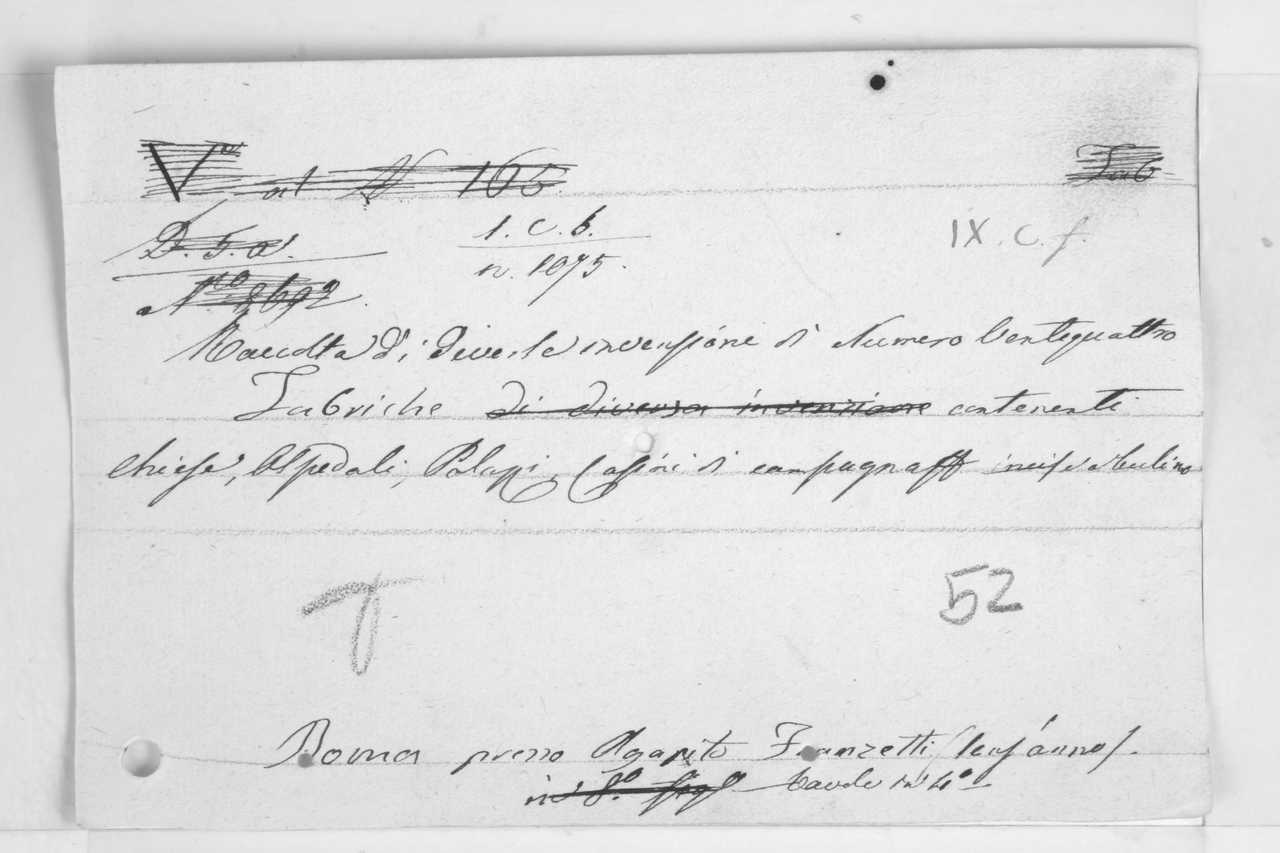 V ad N 165 Fab
D. 5. a. 1. C. b. IX. C. f.
N.ro 8692 n. 1075.
Raccolta di diverse invenzione di Numero Ventiquattro
Fabriche di diversa invenzione contenenti
Chiese, Ospedali, Palazzi, Cassini di campagna incise
52
Roma presso Agapito Franzetti (senz'anno).
in 8.o fig.o Tavole in 4.o